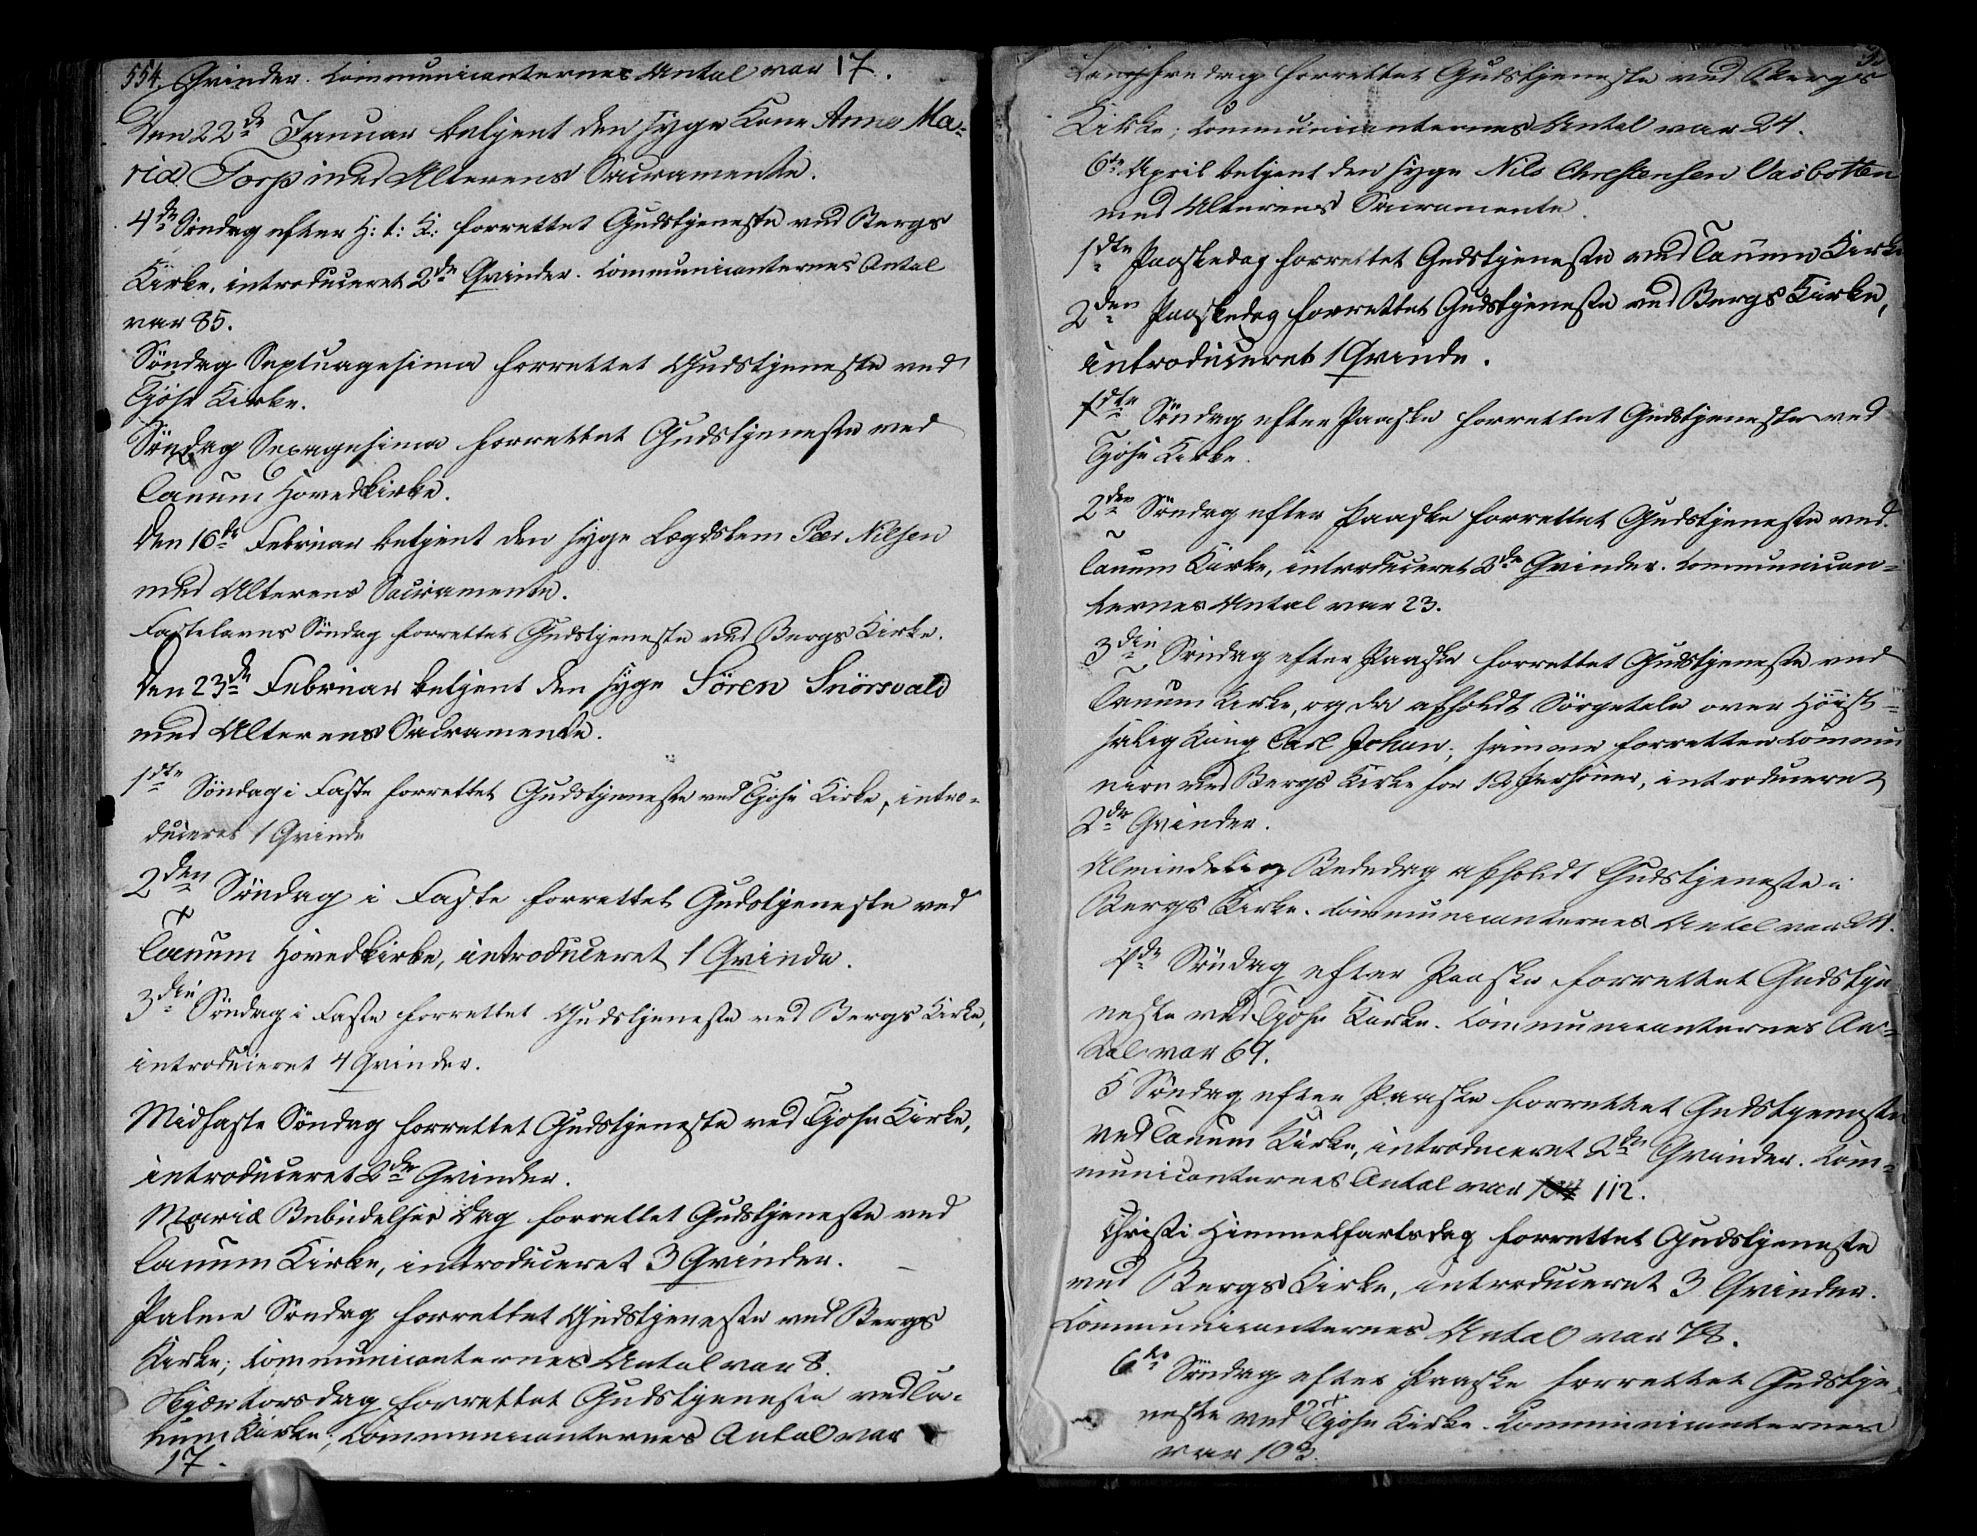 554. Qvinder. Communicanternes Antal var 17.
Den 22de Januar betjent den syge Kone Anne Ma-
ria Torp med Alterens Sacramente.
4de Søndag efter H: t: K: forrettet Gudstjeneste ved Bergs
Kirke, introduceret 2de Qvinder. Communicanternes Antal
var 85.
Søndag Septuagesima forrettet Gudstjeneste ved
Tjøse Kirke.
Søndag Sexagesima forrettet Gudstjeneste ved
Tanum Hovedkirke.
Den 16de Februar betjent den syge Lægdslem Peer Nilsen
med Alterens Sacramente.
Fastelavns Søndag forrettet Gudstjeneste ved Bergs Kirke.
Den 23de Februar betjent den syge Sören Snörsvald
med Alterens Sacramente.
1ste Søndag i Faste forrettet Gudstjeneste ved Tjøse Kirke, intro-
duceret 1 Qvinde
2den Søndag i Faste forrettet Gudstjeneste ved
Tanum Hovedkirke, introduceret 1 Qvinde.
3die Søndag i Faste forrettet Gudstjeneste ved Bergs Kirke,
introduceret 4 Qvinder.
Midfaste Søndag forrettet Gudstjeneste ved Tjøse Kirke,
introduceret 2de Qvinder.
Mariæ Bebudelses Dag forrettet Gudstjeneste ved
Tanum Kirke, introduceret 3 Qvinder.
Palme Søndag forrettet Gudstjeneste ved Bergs
Kirke; Communicanternes Antal var 8.
Skjærtorsdag forrettet Gudstjeneste ved Ta-
num Kirke; Communicanternes Antal var
17.
Langfredag forrettet Gudstjeneste ved Bergs
Kirke; Communicanternes Antal var 24.
6te April betjent den syge Nils Chrestensen Vasbotten
med Alterens Sacramente.
1ste Paaskedag forrettet Gudstjeneste ved Tanum Kirke
2den Paaskedag forrettet Gudstjeneste ved Bergs Kirke,
introduceret 1 Qvinde.
1ste Søndag efter Paaske forrettet Gudstjeneste ved
Tjøse Kirke.
2den Søndag efter Paaske forrettet Gudstjeneste ved
Tanum Kirke, introduceret 2de Qvinder. Communican-
ternes Antal var 23.
3die Søndag efter Paaske forrettet Gudstjeneste ved
Tanum Kirke, og da afholdt Sørgetale over Høist-
salig Kong Carl Johan; samme forretten Commu
nion ved Bergs Kirke for 12 Personer, introduceret
2de Qvinder.
Almindelig Bededag afholdt Gudstjeneste i
Bergs Kirke. Communicanternes Antal var 21.
4de Søndag efter Paaske forrettet Gudstje
neste ved Tjøse Kirke. Communicanternes An-
tal var 69.
5 Søndag efter Paaske forrettet Gudstjeneste
ved Tanum Kirke, introduceret 2de Qvinder. Com-
municanternes Antal var 112.
Christi Himmelfartsdag forrettet Gudstjeneste
ved Bergs Kirke, introduceret 3 Qvinder.
Communicanternes Antal var 78.
6te Søndag efter Paaske forrettet Gudstje
neste ved Tjøse Kirke. Communicanternes
var 103.